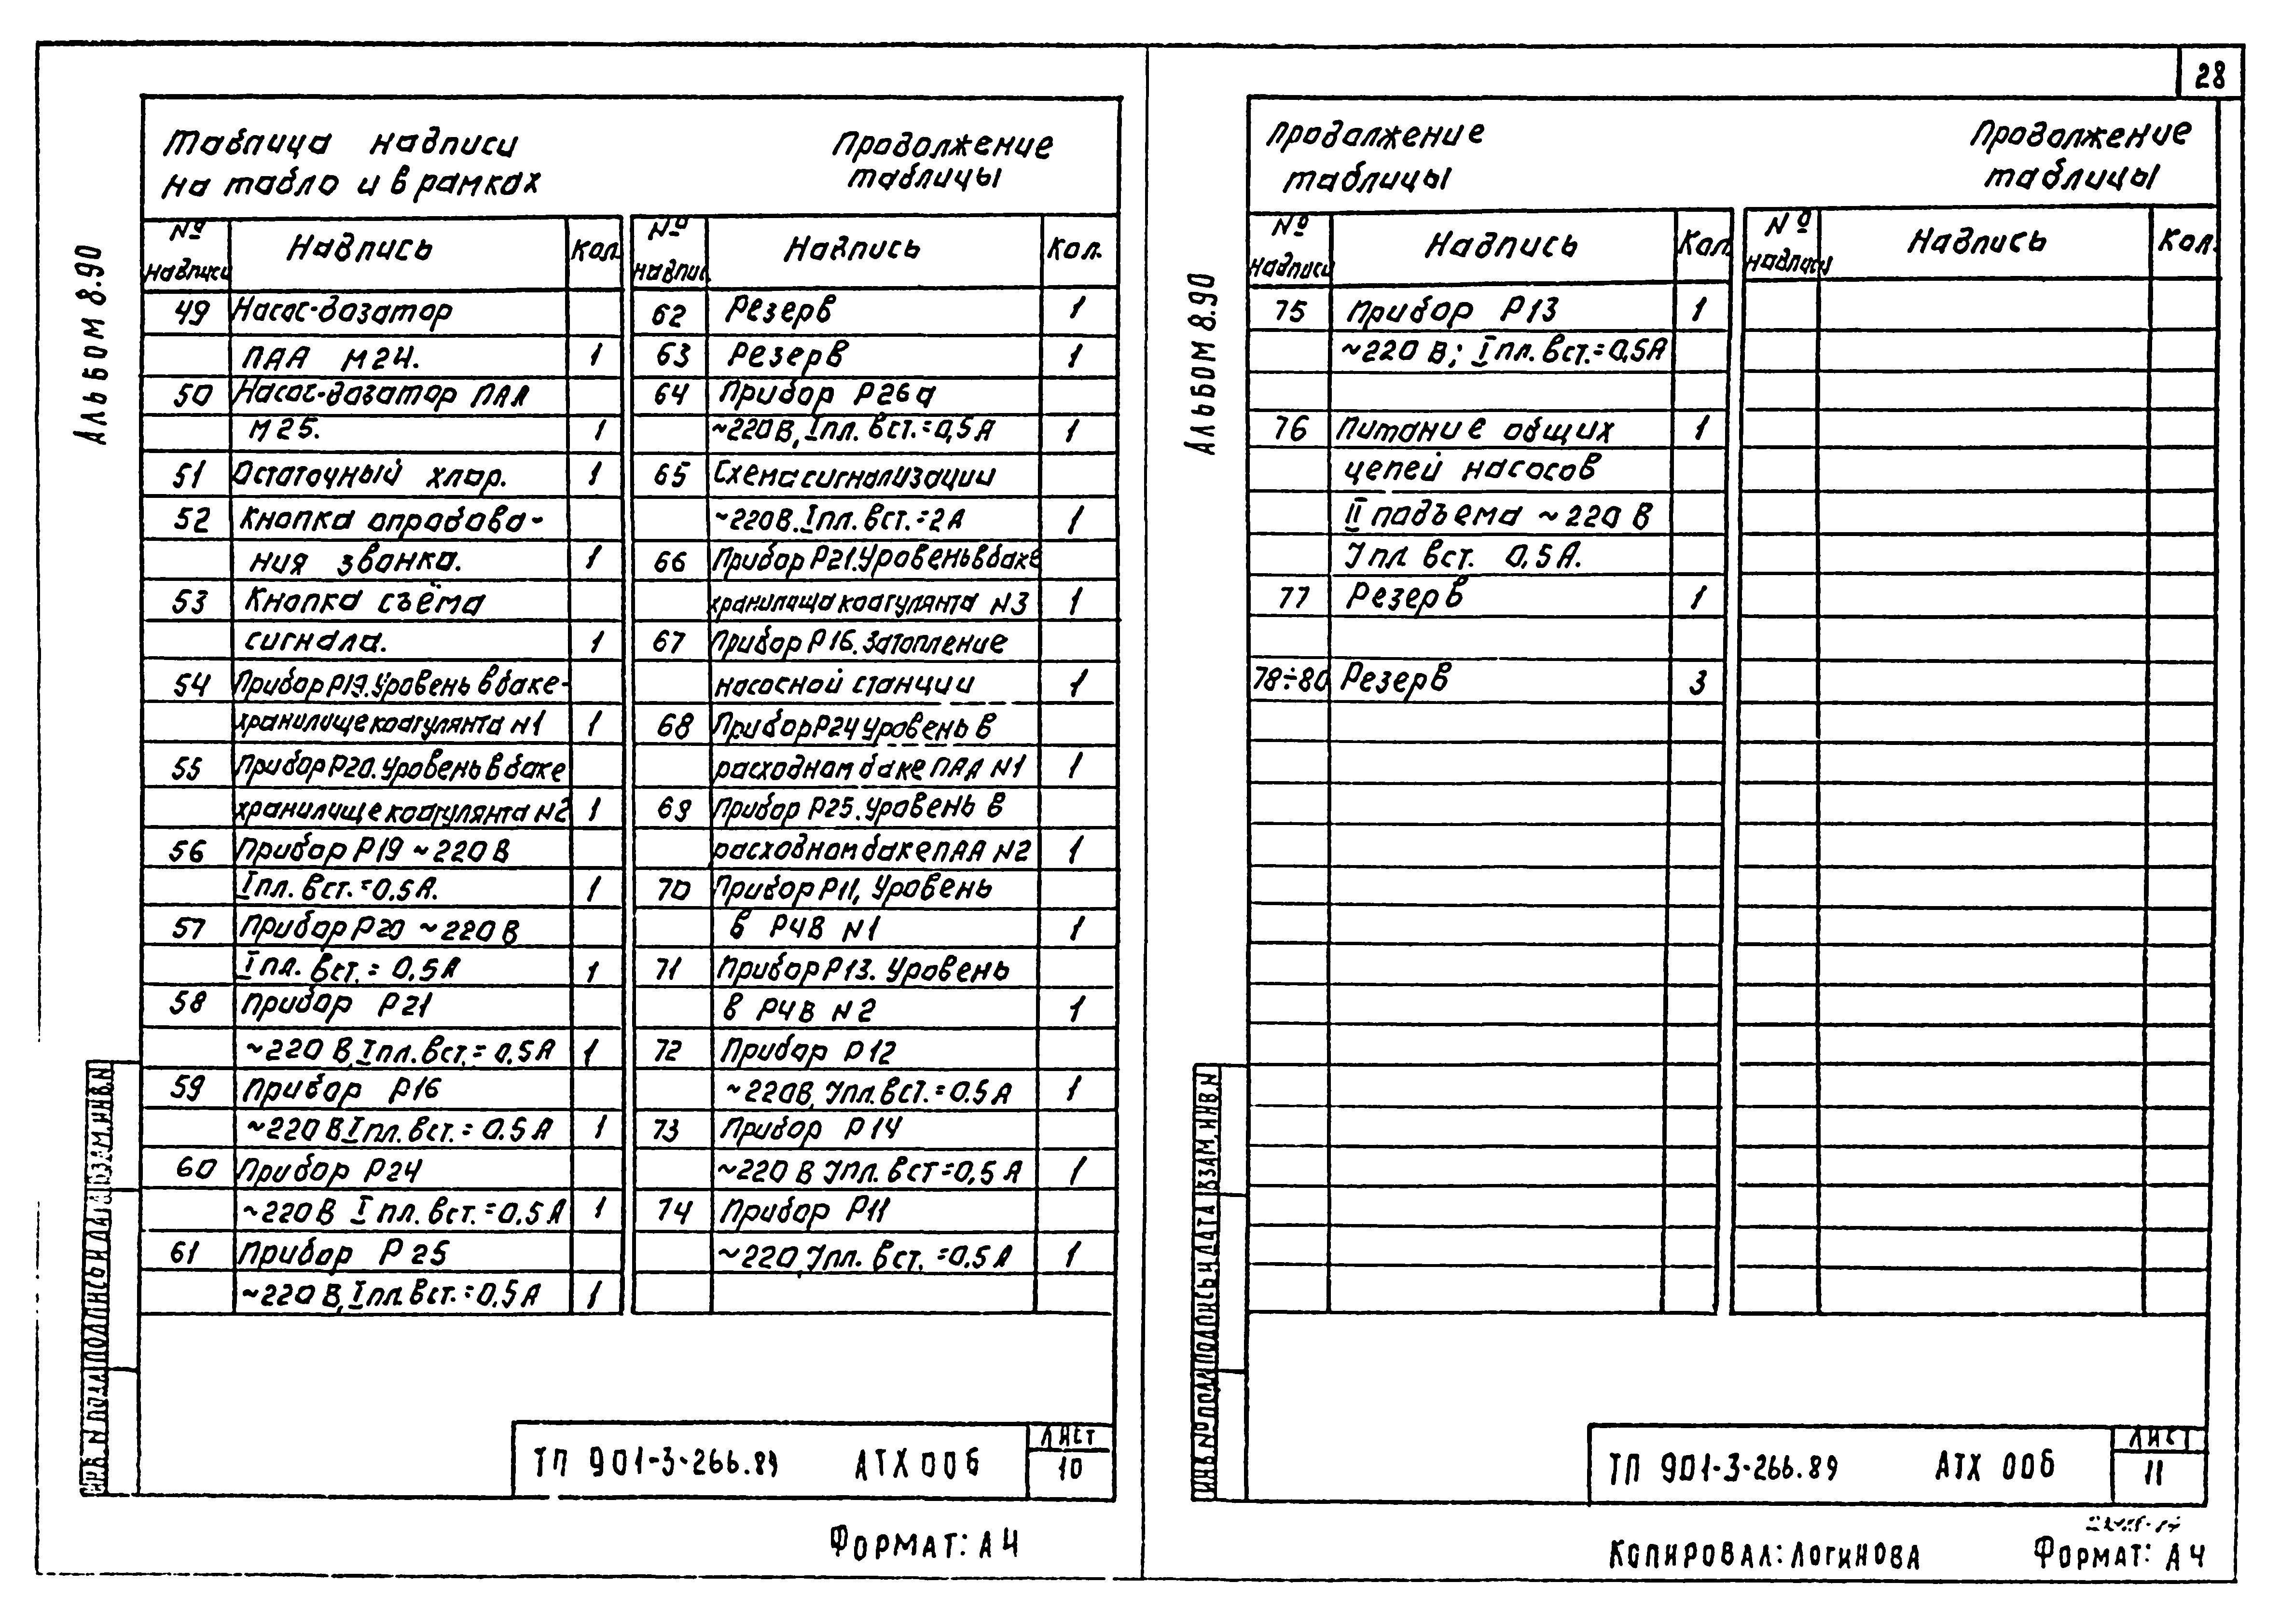 28
Таблица надписи
на табло и в рамках
Продолжение
таблицы
№ надписи Надпись Кол.
49 Насос-дозатор
ПАА М24. 1
50 Насос-дозатор ПАА
М25. 1
51 Остаточный хлор. 1
52 Кнопка опробова-
ния звонка. 1
53 Кнопка съёма
сигнала. 1
54 Прибор Р19. Уровень в баке-
хранилище коагулянта N1 1
55 Прибор Р20. Уровень в баке
хранилище коагулянта N2 1
56 Прибор Р19 ~220 В
Iпл. вст.=0.5А. 1
57 Прибор Р20 ~220 В
Iпл. вст.= 0.5А 1
58 Прибор Р21
~220 В, Iпл. вст.= 0,5А 1
59 Прибор Р16
~220 В Iпл. вст.= 0.5А 1
60 Прибор Р24
~220 В Iпл. вст.=0.5А 1
61 Прибор Р25
~220 В, Iпл. вст.=0.5А 1
№ надпис. Надпись Кол.
62 Резерв 1
63 Резерв 1
64 Прибор Р26а
~220В, Iпл. вст.=0,5А 1
65 Схема сигнализации
~220В. Iпл. вст.=2А 1
66 Прибор Р21. Уровень в баке
хранилища коагулянта N3 1
67 Прибор Р16. Затопление
насосной станции 1
68 Прибор Р24 Уровень в
расходном баке ПАА N1 1
69 Прибор Р25. Уровень в
расходном баке ПАА N2 1
70 Прибор Р11, Уровень
в РЧВ N1 1
71 Прибор Р13. Уровень
в РЧВ N2 1
72 Прибор Р12
~220В, Iпл. вст.=0.5А 1
73 Прибор Р14
~220 В Iпл. вст=0,5А 1
74 Прибор Р11
~220, Iпл. вст.=0.5А 1
Альбом 8.90
ИНВ. N ПОДЛ ПОДПИСЬ И ДАТА ВЗАМ.ИНВ.N
ТП 901-3-266.89 АТХ 00б
ЛИСТ
10
ФОРМАТ: А4
Продолжение
таблицы
Продолжение
таблицы
№ надписи Надпись Кол.
75 Прибор Р13 1
~220 В; Iпл. вст.=0,5А
76 Питание общих 1
цепей насосов
II подъема ~220 В
Iпл вст. 0,5А.
77 Резерв 1
78÷80 Резерв 3
№ надписи Надпись Кол.
Альбом 8.90
ИНВ.№ПОДЛ ПОДПИСЬ И ДАТА ВЗАМ.ИНВ.N
ТП 901-3-266.89 АТХ 00б
ЛИСТ
11
КОПИРОВАЛ: ЛОГИНОВА
ФОРМАТ: А4